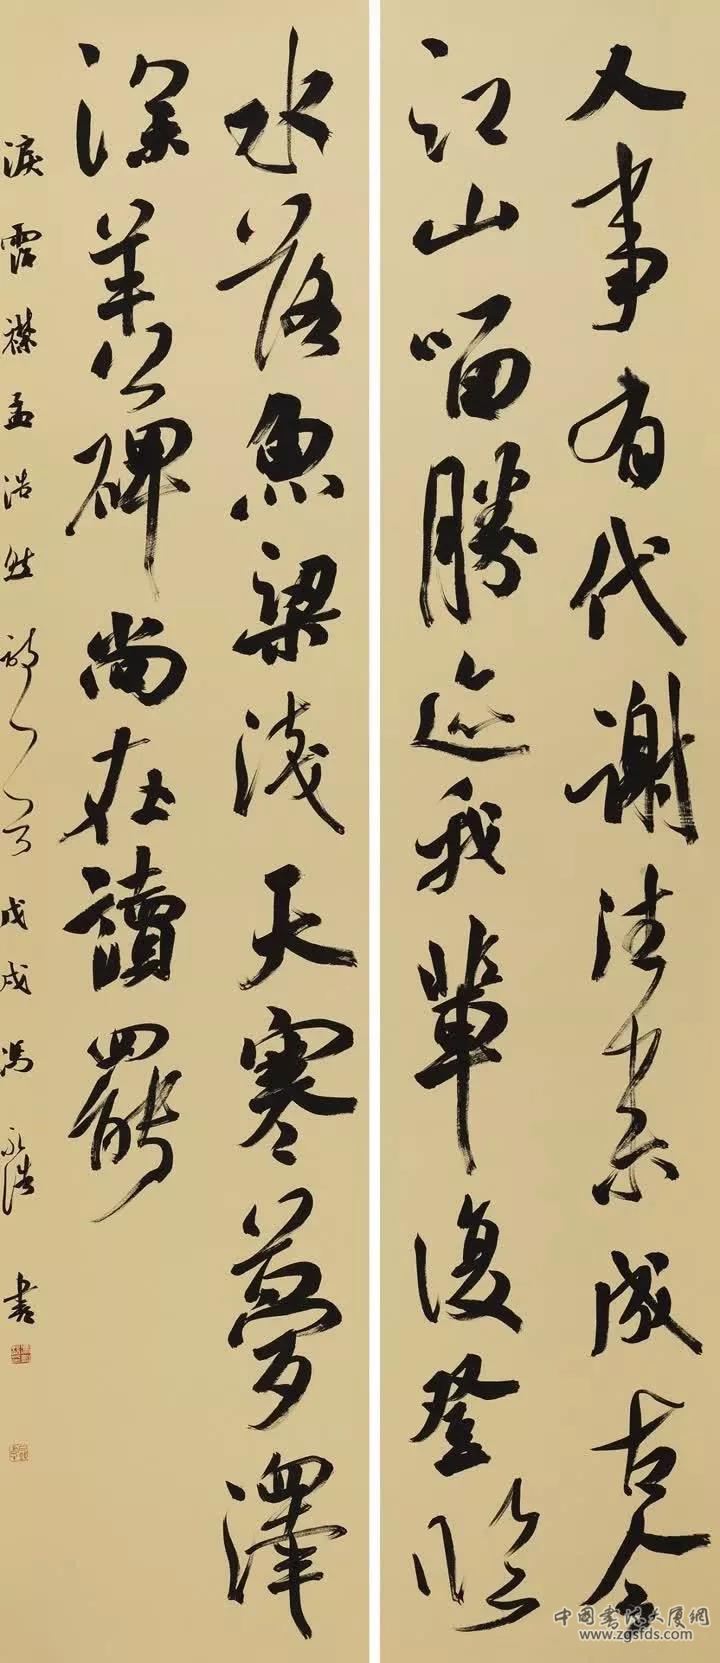 人事有代謝往来成古今
江山留勝迹我輩復登臨
水落魚梁淺天寒夢澤
深羊公碑尚在讀罷
淚霑襟孟浩然詩一首戊戌馮書
中国書法大厦網
www.zgsfds.com